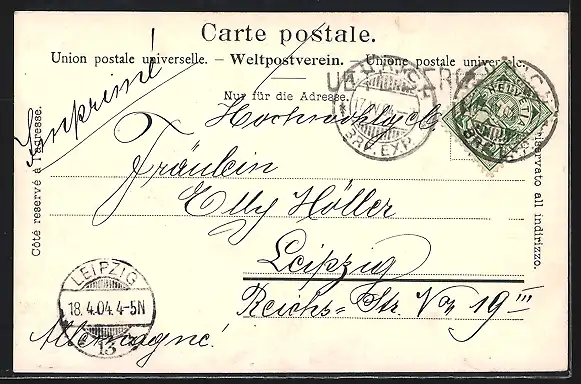 Carte postale.
Union postale universelle. – Weltpostverein. – Unione postale universale.
Nur für die Adresse.
Côté reservé à l'adresse.
Imprimé
Fräulein
Elly Höller
Leipzig
Reichs-Str. No 19 III
Allemagne!
LEIPZIG
18. 4.04. 4-5N
13
BRF. EXP.
HELVETIA
riservato all indirizzo.